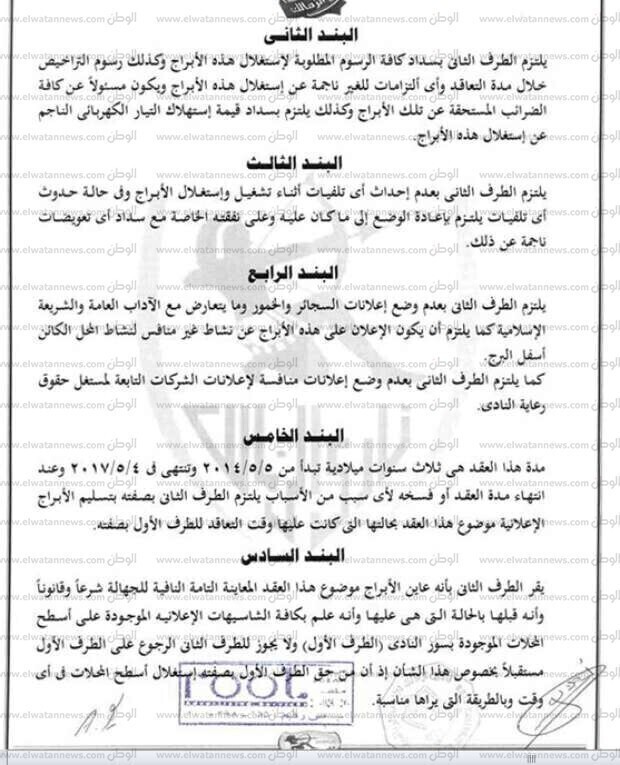 البند الثانى
يلتزم الطرف الثانى بسداد كافة الرسوم المطلوبة لإستغلال هذه الأبراج وكذلك رسوم التراخيص
خلال مدة التعاقد وأى ألتزامات للغير ناجمة عن إستغلال هذه الأبراج ويكون مسئولاً عن كافة
الضرائب المستحقة عن تلك الأبراج وكذلك يلتزم بسداد قيمة إستهلاك التيار الكهربائى الناجم
عن إستغلال هذه الأبراج.
البند الثالث
يلتزم الطرف الثانى بعدم إحداث أى تلفيات أثناء تشغيل وإستغلال الأبراج وفى حالة حدوث
أى تلفيات يلتزم بإعادة الوضع إلى ما كان عليه وعلى نفقته الخاصة مع سداد أى تعويضات
ناجمة عن ذلك.
البند الرابع
يلتزم الطرف الثانى بعدم وضع إعلانات السجائر والخمور وما يتعارض مع الآداب العامة والشريعة
الإسلامية كما يلتزم أن يكون الإعلان على هذه الأبراج عن نشاط غير منافس لنشاط المحل الكائن
أسفل البرج.
كما يلتزم الطرف الثانى بعدم وضع إعلانات منافسة لإعلانات الشركات التابعة لمستغل حقوق
رعاية النادى.
البند الخامس
مدة هذا العقد هى ثلاث سنوات ميلادية تبدأ من ٢٠١٤/٥/٥ وتنتهى فى ٢٠١٧/٥/٤ وعند
انتهاء مدة العقد أو فسخه لأى سبب من الأسباب يلتزم الطرف الثانى بصفته بتسليم الأبراج
الإعلانية موضوع هذا العقد بحالتها التى كانت عليها وقت التعاقد للطرف الأول بصفته.
البند السادس
يقر الطرف الثانى بأنه عاين الأبراج موضوع هذا العقد المعاينة التامة النافية للجهالة شرعاً وقانوناً
وأنه قبلها بالحالة التى هى عليها وأنه علم بكافة الشاسيهات الإعلانيه الموجودة على أسطح
المحلات الموجودة بسور النادى (الطرف الأول) ولا يجوز للطرف الثانى الرجوع على الطرف الأول
مستقبلاً بخصوص هذا الشأن إذ أن من حق الطرف الأول بصفته إستغلال أسطح المحلات فى أى
وقت وبالطريقة التى يراها مناسبة.
root
الوطن www.elwatannews.com